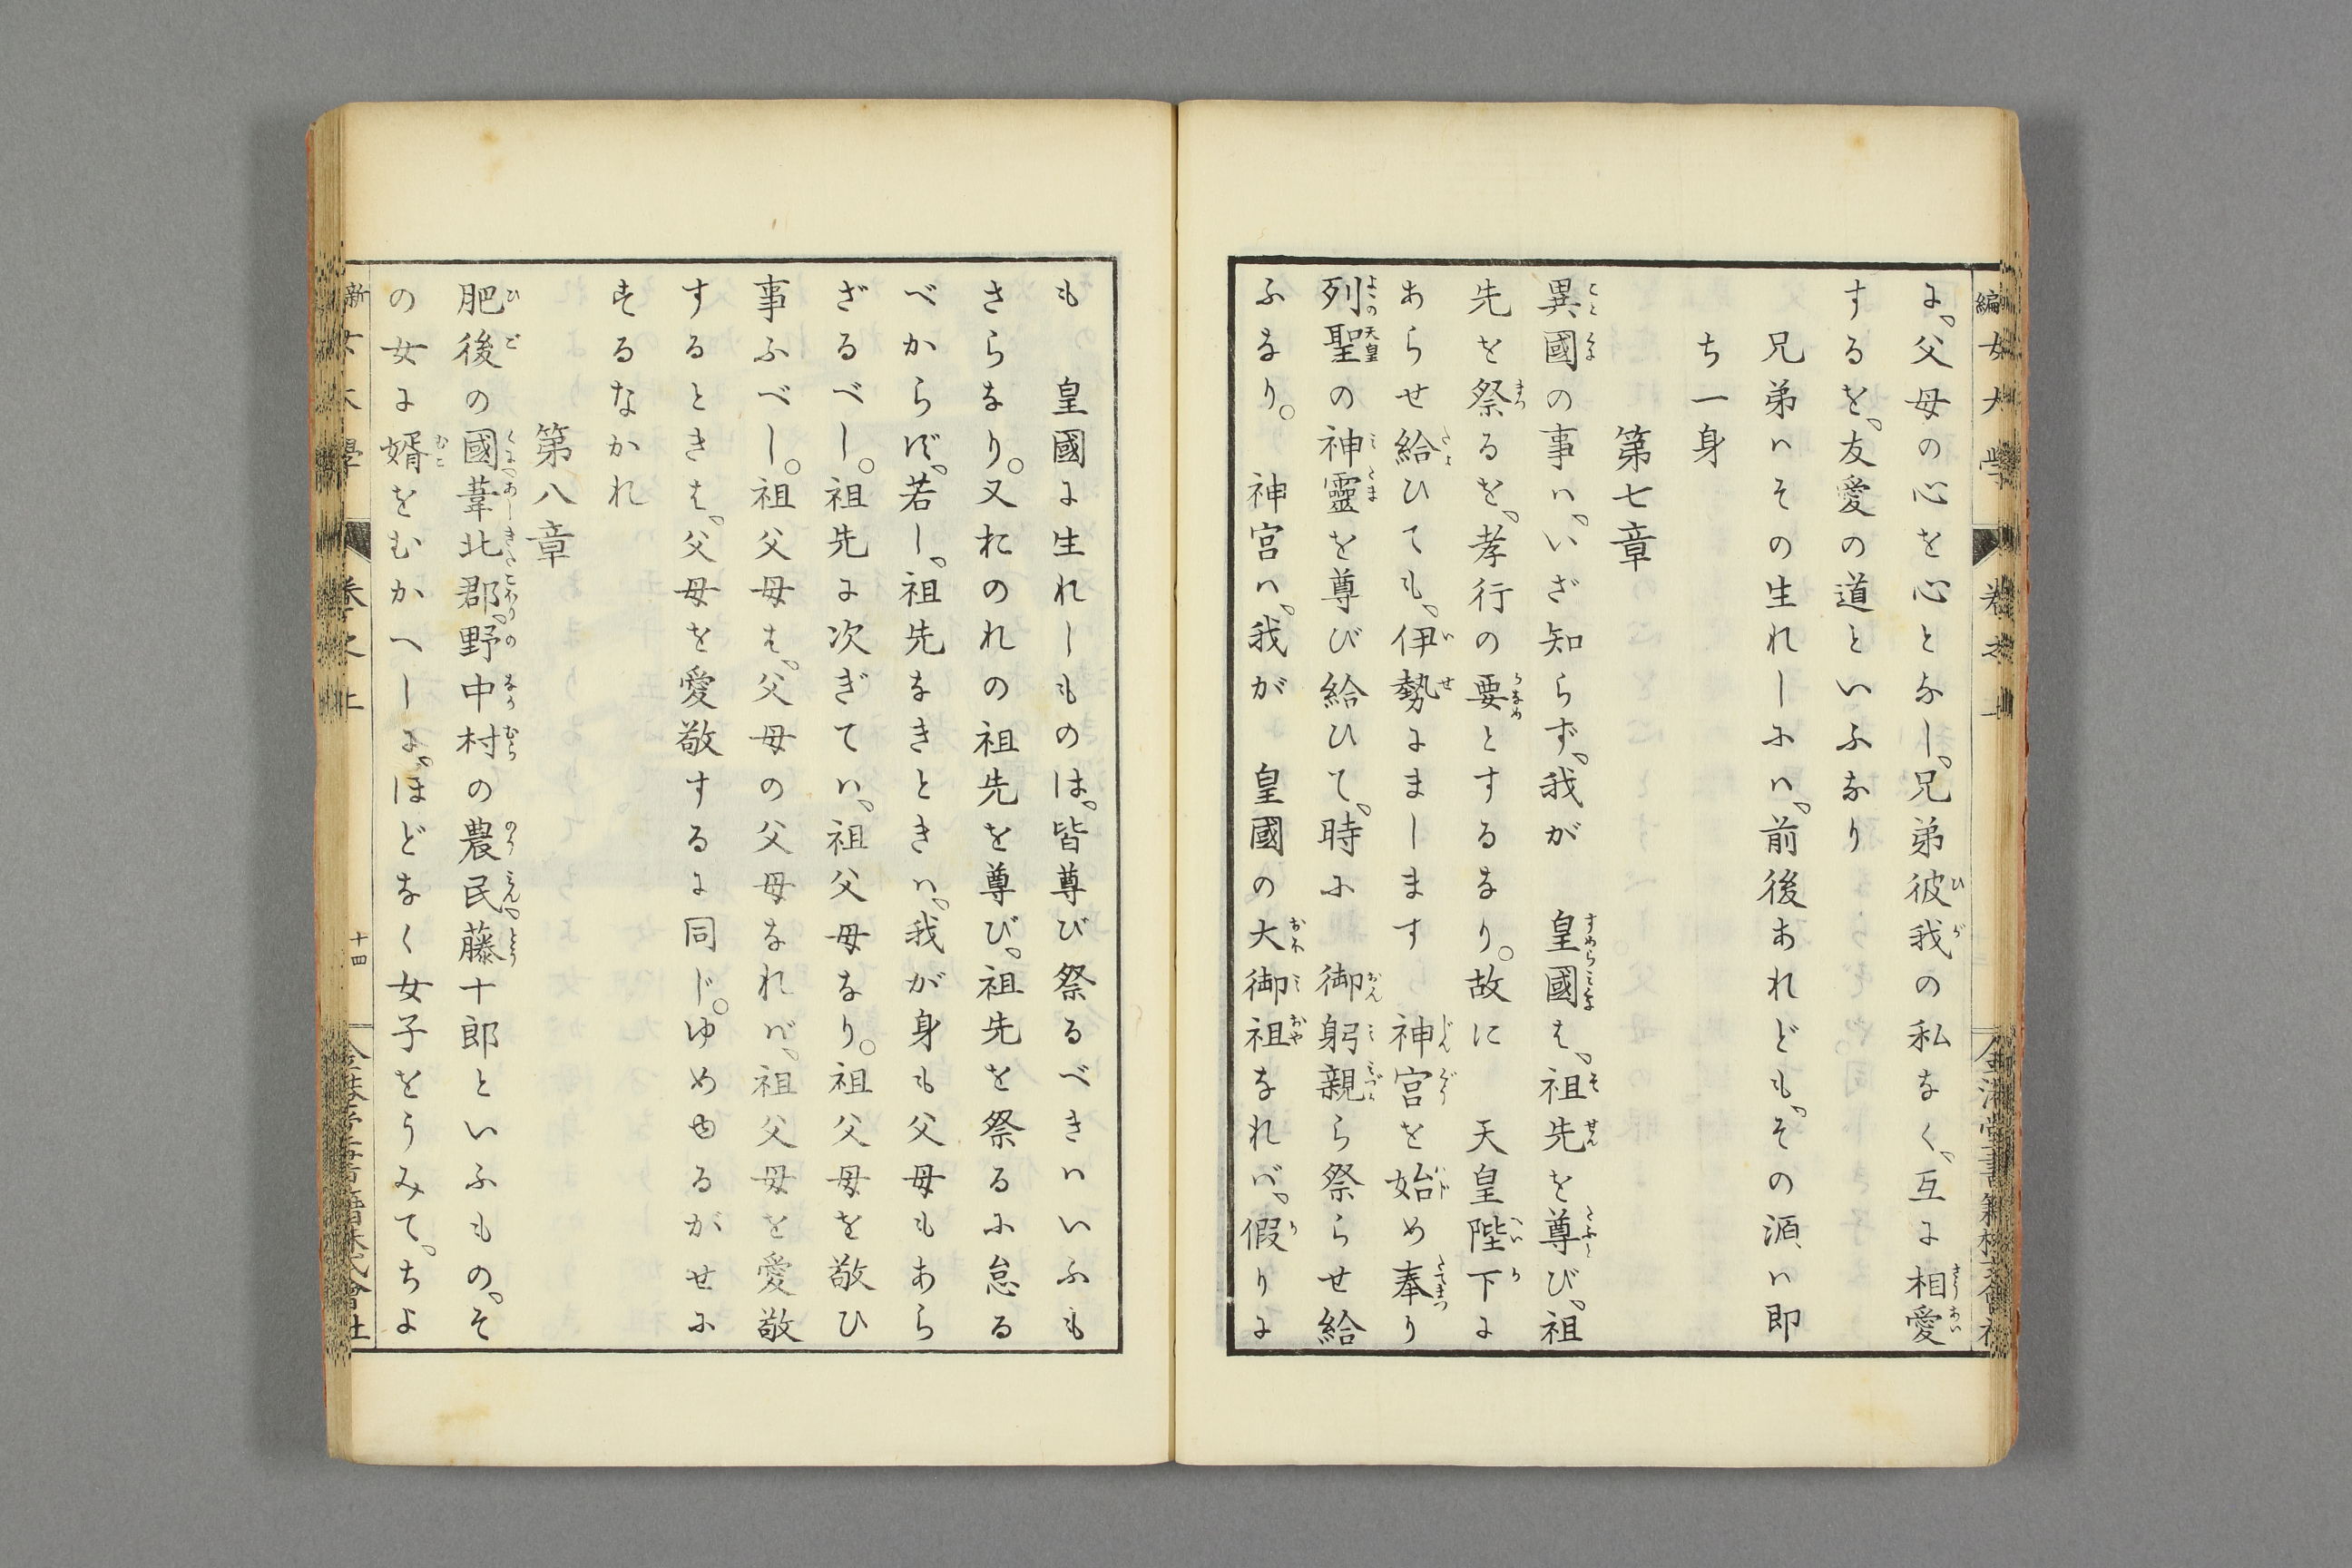 に、父母の心を心となし、兄弟彼我の私なく、互に相愛
するを、友愛の道といふなり
兄弟ハその生れしにハ、前後あれども、その源ハ即
ち一身
第七章
異國の事ハ、いざ知らず、我が　皇國は、祖先を尊び、祖
先を祭るを、孝行の要とするなり。故に　天皇陛下に
あらせ給ひても、伊勢にまします　神宮を始め奉り
列聖の神靈を尊び給ひて、時に　御躬親ら祭らせ給
ふなり。　神宮ハ、我が　皇國の大御祖なれバ、假りに
も　皇國に生れしものは、皆尊び祭るべきハいふも
さらなり。又おのれの祖先を尊び、祖先を祭るに怠る
べからず、若し、祖先なきときハ、我が身も父母もあら
ざるべし。祖先に次ぎてハ、祖父母なり。祖父母を敬ひ
事ふべし。祖父母は、父母の父母なれバ、祖父母を愛敬
するときは、父母を愛敬するに同じ。ゆめゆるがせに
するなかれ
第八章
肥後の國、葦北郡、野中村の農民、藤十郎といふもの、そ
の女に婿をむかへしに、ほどなく女子をうみて、ちよ
十四